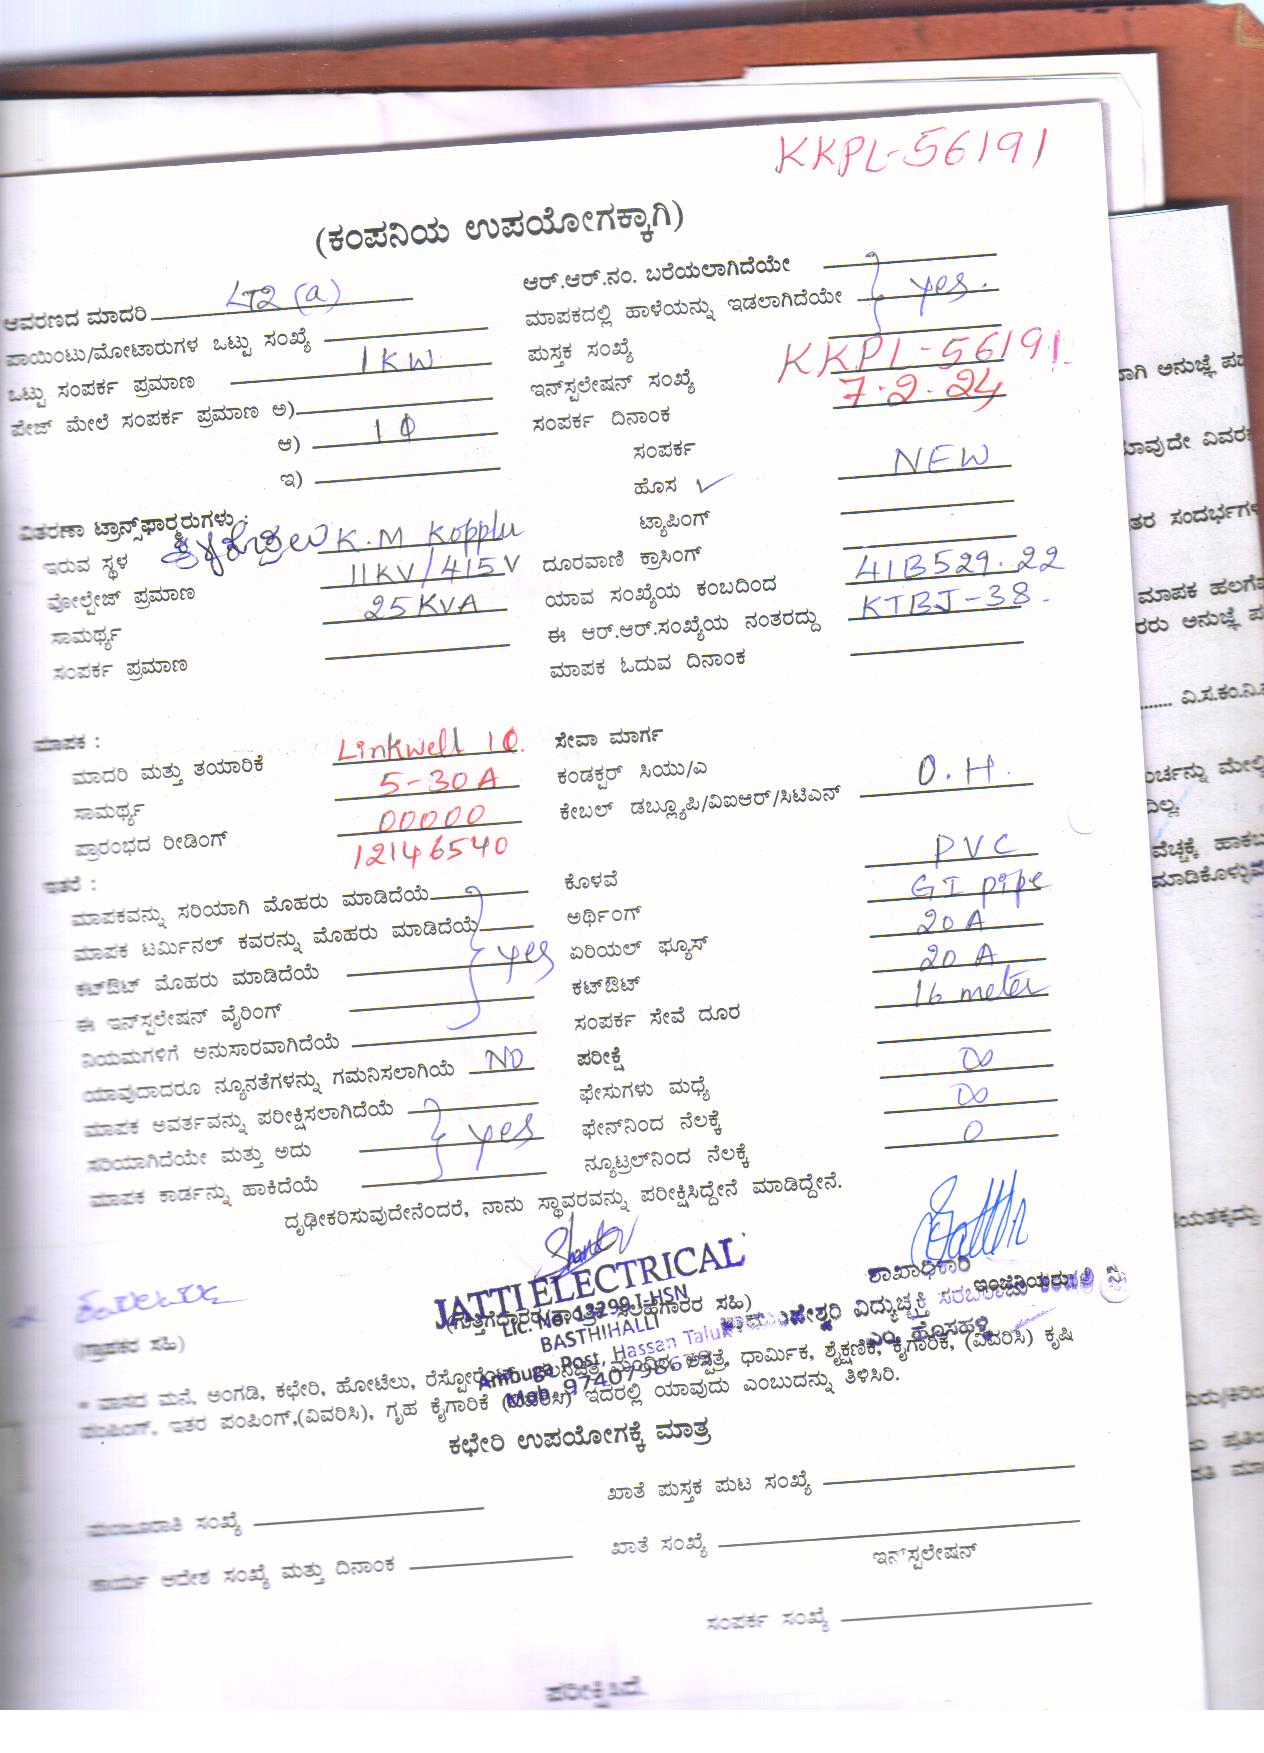 KKPL-56191
(ಕಂಪನಿಯ ಉಪಯೋಗಕ್ಕಾಗಿ)
ಆವರಣದ ಮಾದರಿ LT2 (a)
ಪಾಯಿಂಟು/ಮೋಟಾರುಗಳ ಒಟ್ಟು ಸಂಖ್ಯೆ
ಒಟ್ಟು ಸಂಪರ್ಕ ಪ್ರಮಾಣ 1KW
ಪೇಜ್ ಮೇಲೆ ಸಂಪರ್ಕ ಪ್ರಮಾಣ ಅ)
ಆ) 1ϕ
ಇ)
ಆರ್.ಆರ್.ನಂ. ಬರೆಯಲಾಗಿದೆಯೇ
ಮಾಪಕದಲ್ಲಿ ಹಾಳೆಯನ್ನು ಇಡಲಾಗಿದೆಯೇ yes.
ಪುಸ್ತಕ ಸಂಖ್ಯೆ
ಇನ್‌ಸ್ಪಲೇಷನ್ ಸಂಖ್ಯೆ KKPL-56191
ಸಂಪರ್ಕ ದಿನಾಂಕ 7.2.24
ಸಂಪರ್ಕ
ಹೊಸ ✓ NEW
ಟ್ಯಾಪಿಂಗ್
ವಿತರಣಾ ಟ್ರಾನ್ಸ್‌ಫಾರ್ಮರುಗಳು :
ಇರುವ ಸ್ಥಳ K.M Kopplu
ವೋಲ್ಟೇಜ್ ಪ್ರಮಾಣ 11KV/415V
ಸಾಮರ್ಥ್ಯ 25KVA
ಸಂಪರ್ಕ ಪ್ರಮಾಣ
ದೂರವಾಣಿ ಕ್ರಾಸಿಂಗ್
ಯಾವ ಸಂಖ್ಯೆಯ ಕಂಬದಿಂದ 41B529.22
ಈ ಆರ್.ಆರ್.ಸಂಖ್ಯೆಯ ನಂತರದ್ದು KTBJ-38.
ಮಾಪಕ ಓದುವ ದಿನಾಂಕ
ಮಾಪಕ :
ಮಾದರಿ ಮತ್ತು ತಯಾರಿಕೆ Linkwell 1ϕ.
ಸಾಮರ್ಥ್ಯ 5-30A
ಪ್ರಾರಂಭದ ರೀಡಿಂಗ್ 00000
12146540
ಸೇವಾ ಮಾರ್ಗ
ಕಂಡಕ್ಟರ್ ಸಿಯು/ಎ
ಕೇಬಲ್ ಡಬ್ಲ್ಯೂಪಿ/ವಿಐಆರ್/ಸಿಟಿಎನ್ O.H.
ಇತರೆ :
ಮಾಪಕವನ್ನು ಸರಿಯಾಗಿ ಮೊಹರು ಮಾಡಿದೆಯೆ
ಮಾಪಕ ಟರ್ಮಿನಲ್ ಕವರನ್ನು ಮೊಹರು ಮಾಡಿದೆಯೆ
ಕಟ್‌ಔಟ್ ಮೊಹರು ಮಾಡಿದೆಯೆ yes
ಈ ಇನ್‌ಸ್ಪಲೇಷನ್ ವೈರಿಂಗ್
ನಿಯಮಗಳಿಗೆ ಅನುಸಾರವಾಗಿದೆಯೆ
ಯಾವುದಾದರೂ ನ್ಯೂನತೆಗಳನ್ನು ಗಮನಿಸಲಾಗಿಯೆ NO
ಮಾಪಕ ಅವರ್ತವನ್ನು ಪರೀಕ್ಷಿಸಲಾಗಿದೆಯೆ
ಸರಿಯಾಗಿದೆಯೇ ಮತ್ತು ಅದು yes
ಮಾಪಕ ಕಾರ್ಡನ್ನು ಹಾಕಿದೆಯೆ
ಕೊಳವೆ PVC
ಅರ್ಥಿಂಗ್ GI pipe
ಏರಿಯಲ್ ಫ್ಯೂಸ್ 20A
ಕಟ್‌ಔಟ್ 20 A
ಸಂಪರ್ಕ ಸೇವೆ ದೂರ 16 meter
ಪರೀಕ್ಷೆ
ಫೇಸುಗಳು ಮಧ್ಯೆ ∞
ಫೇಸ್‌ನಿಂದ ನೆಲಕ್ಕೆ ∞
ನ್ಯೂಟ್ರಲ್‌ನಿಂದ ನೆಲಕ್ಕೆ 0
ದೃಢೀಕರಿಸುವುದೇನೆಂದರೆ, ನಾನು ಸ್ಥಾವರವನ್ನು ಪರೀಕ್ಷಿಸಿದ್ದೇನೆ ಮಾಡಿದ್ದೇನೆ.
JATTI ELECTRICAL
Lic. No. 13299 I-HSN
BASTHIHALLI
Ambuga Post, Hassan Taluk
(ಗ್ರಾಹಕರ ಸಹಿ)
ಶಾಖಾಧಿಕಾರಿ
ಎಂ. ಹೊಸಹಳ್ಳಿ
* ವಾಸದ ಮನೆ, ಅಂಗಡಿ, ಕಛೇರಿ, ಹೋಟೆಲು, ಆಸ್ಪತ್ರೆ, ಧಾರ್ಮಿಕ, ಶೈಕ್ಷಣಿಕ, ಕೈಗಾರಿಕೆ, (ವಿವರಿಸಿ) ಕೃಷಿ
ಪಂಪಿಂಗ್, ಇತರ ಪಂಪಿಂಗ್,(ವಿವರಿಸಿ), ಗೃಹ ಕೈಗಾರಿಕೆ (ವಿವರಿಸಿ) ಇದರಲ್ಲಿ ಯಾವುದು ಎಂಬುದನ್ನು ತಿಳಿಸಿರಿ.
ಕಛೇರಿ ಉಪಯೋಗಕ್ಕೆ ಮಾತ್ರ
ಮಂಜೂರಾತಿ ಸಂಖ್ಯೆ
ಖಾತೆ ಪುಸ್ತಕ ಪುಟ ಸಂಖ್ಯೆ
ಕಾರ್ಯ ಆದೇಶ ಸಂಖ್ಯೆ ಮತ್ತು ದಿನಾಂಕ
ಖಾತೆ ಸಂಖ್ಯೆ
ಇನ್‌ಸ್ಪಲೇಷನ್
ಸಂಪರ್ಕ ಸಂಖ್ಯೆ
ಪರೀಕ್ಷಿಸಿದೆ.